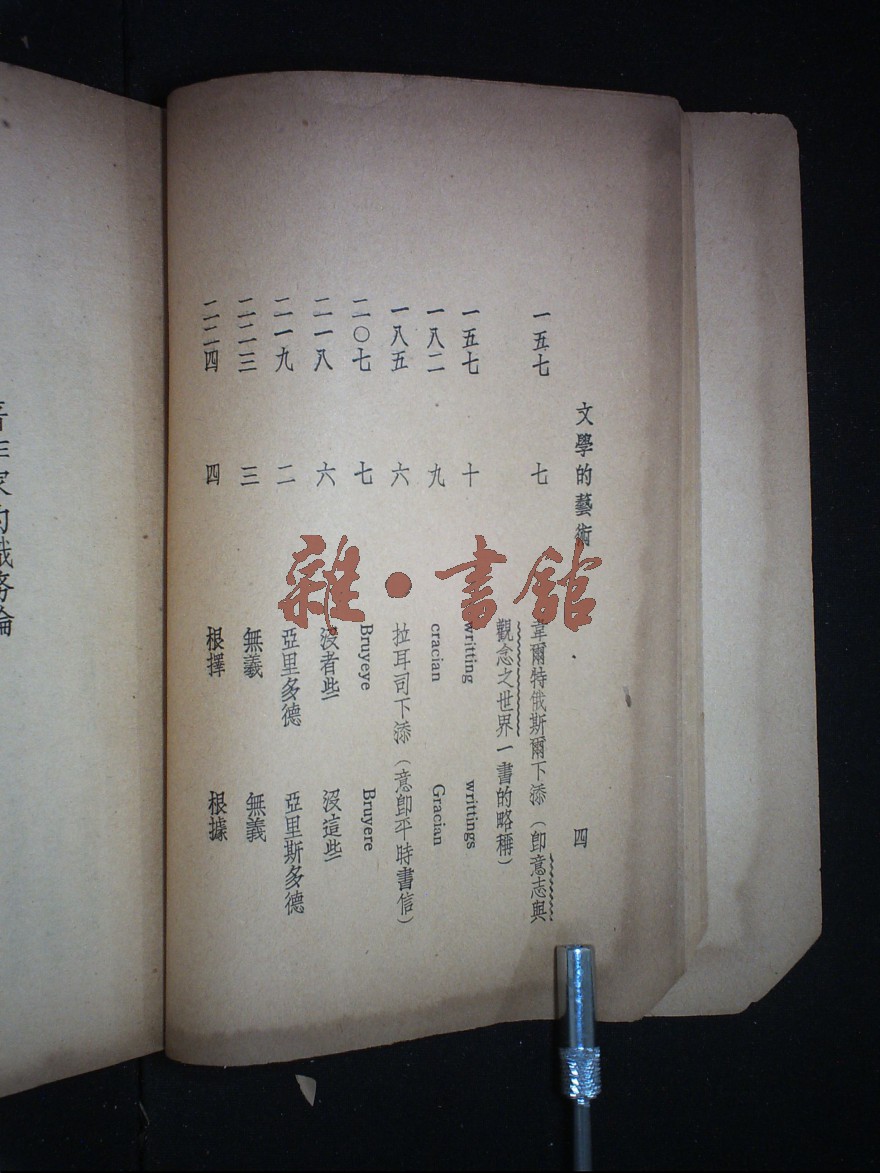 文學的藝術 四
一五七 七 韋爾特俄斯爾下添（卽意志與
觀念之世界一書的略稱）
一五七 十 writting writtings
一八二 九 cracian Gracian
一八五 六 拉耳司下添（意卽平時書信）
二〇七 七 Bruyeye Bruyere
二一八 六 沒者些 沒這些
二一九 二 亞里多德 亞里斯多德
二二三 三 無羲 無義
二二四 四 根擇 根據
著作家的職務論
雜·書館